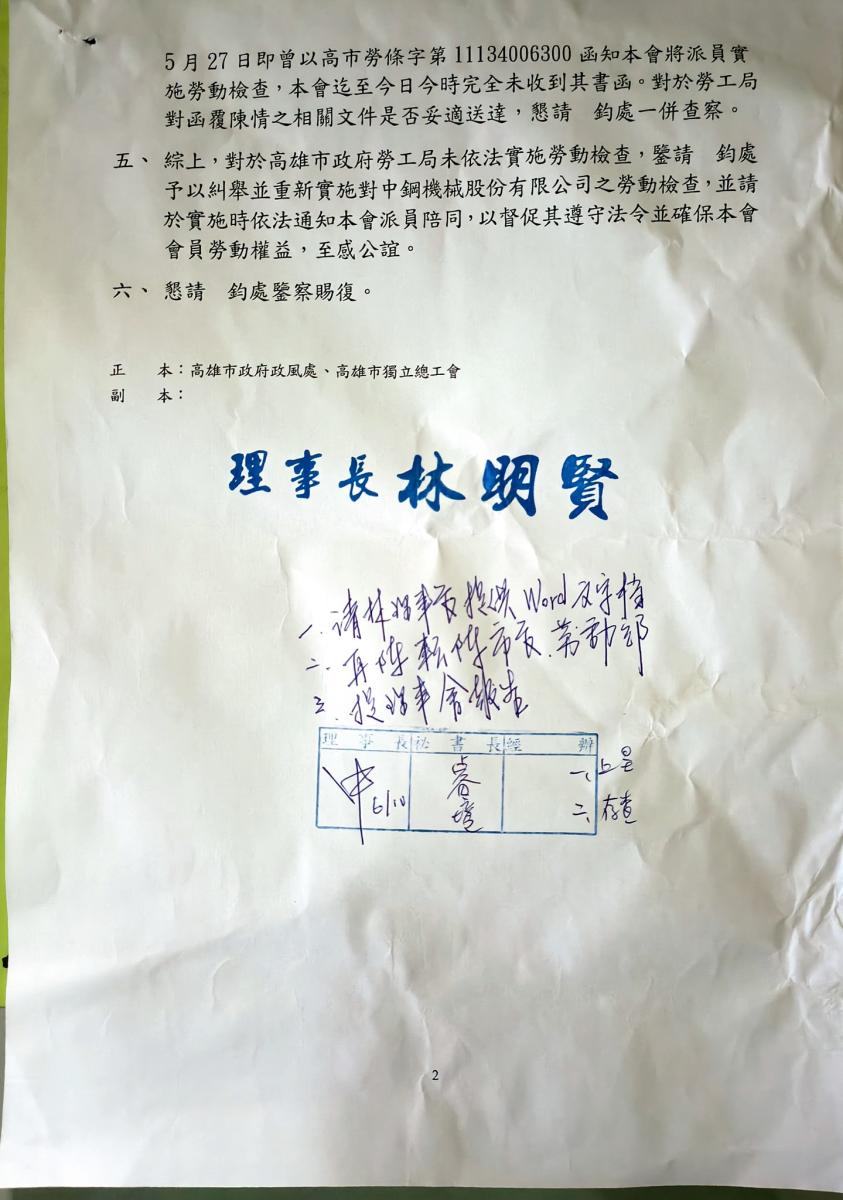 5月27日即曾以高市勞條字第11134006300函知本會將派員實
施勞動檢查，本會迄至今日今時完全未收到其書函。對於勞工局
對函覆陳情之相關文件是否妥適送達，懇請　鈞處一併查察。
五、 綜上，對於高雄市政府勞工局未依法實施勞動檢查，鑒請　鈞處
予以糾舉並重新實施對中鋼機械股份有限公司之勞動檢查，並請
於實施時依法通知本會派員陪同，以督促其遵守法令並確保本會
會員勞動權益，至感公誼。
六、 懇請　鈞處鑒察賜復。
正　　本：高雄市政府政風處、高雄市獨立總工會
副　　本：
理事長 林明賢
一. 請林理事長提供Word文字檔
二. 再陳轉陳市長、勞動部
三. 提理事會報告
理事長 祕書長 經辦
6/10 一、上呈
二、存查
2